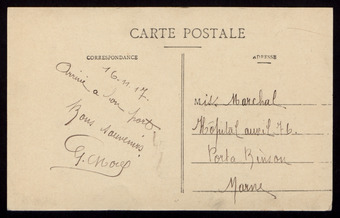 CARTE POSTALE
CORRESPONDANCE
ADRESSE
16.11.17.
Arrivé a bon port
Bons souvenirs
Miss Marchal
Hôpital auxil 76.
Port à Binson
Marne